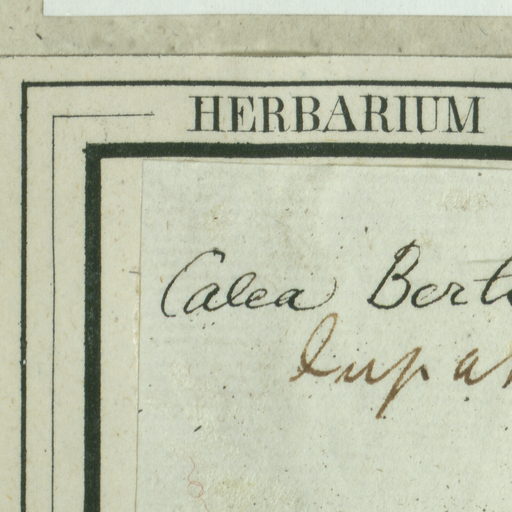 HERBARIUM
Calea Bert